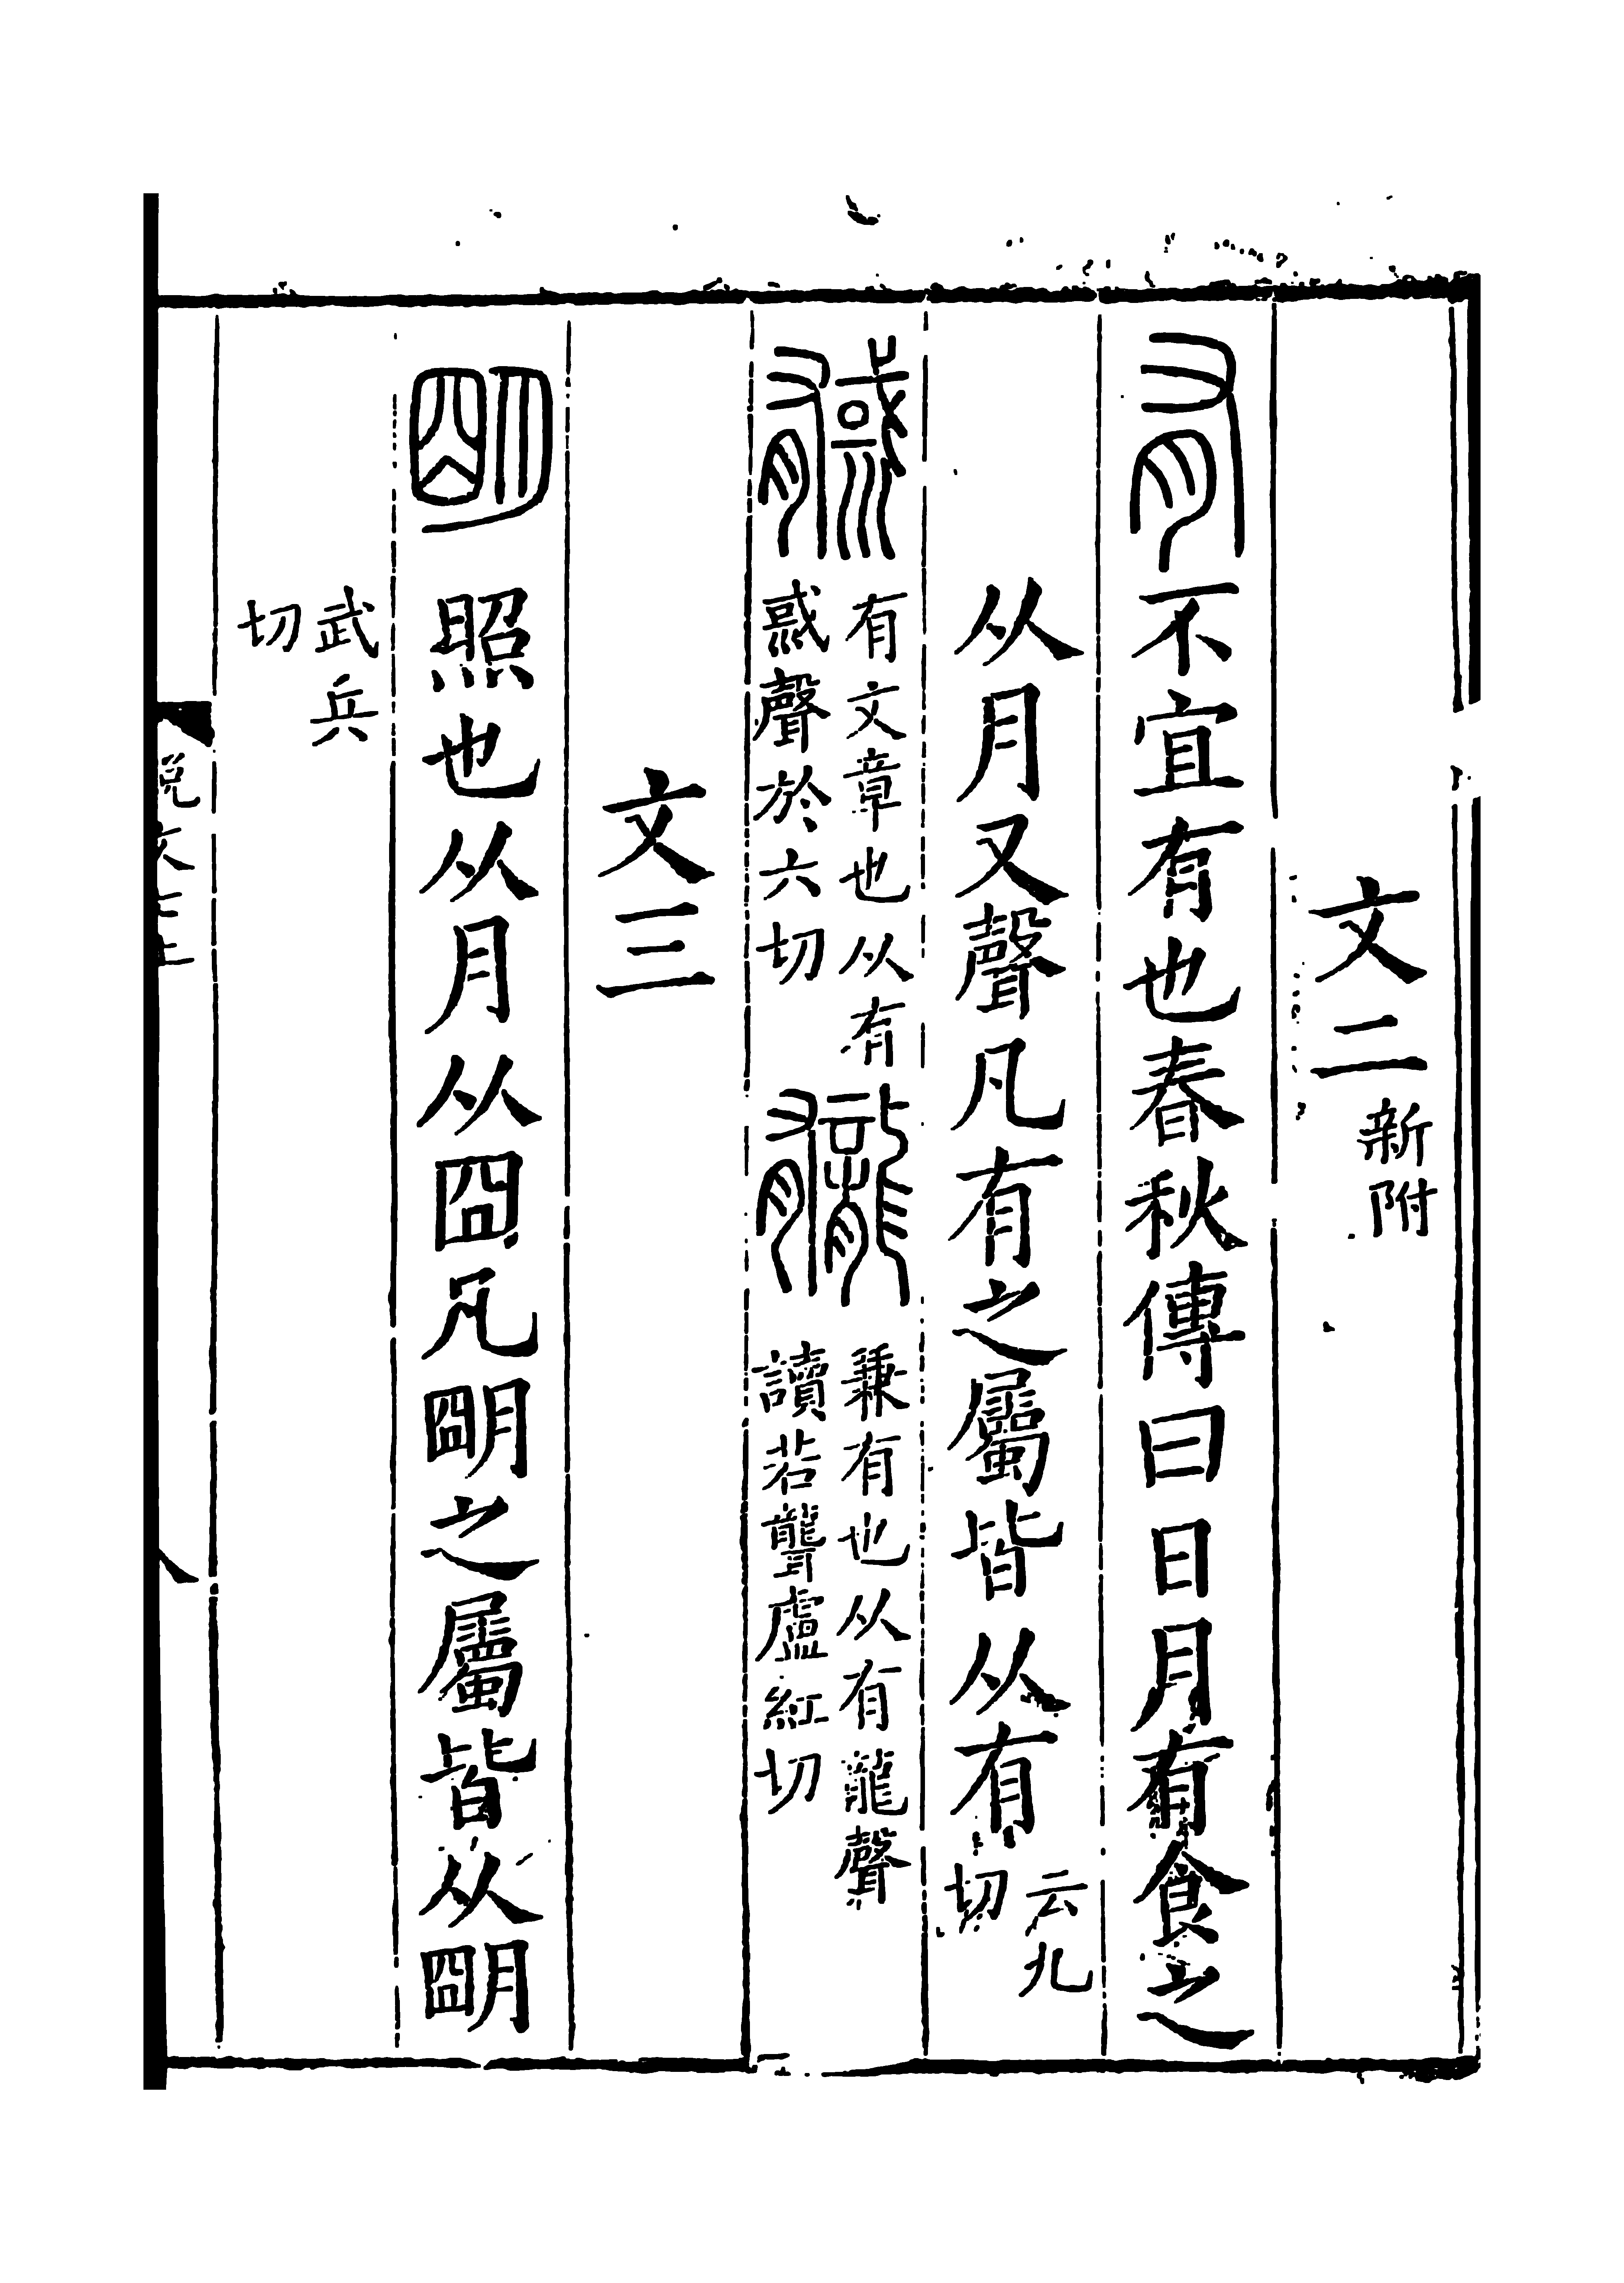 文二新附
有不宜有也春秋傳曰日月有食之
从月又聲凡有之屬皆从有云九切
𢒰有文章也从有惑聲於六切龓兼有也从有龍聲讀若聾盧紅切
文三
朙照也从月从囧凡朙之屬皆从朙
武兵切